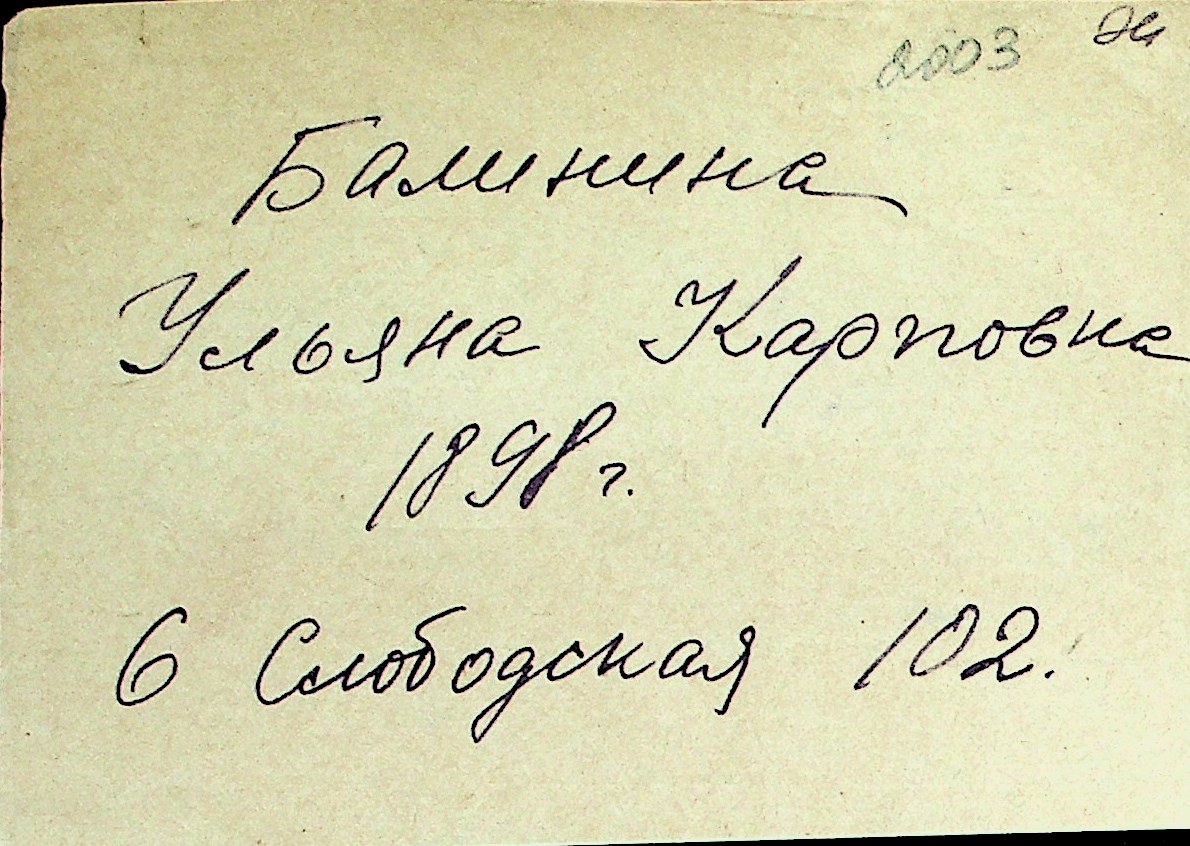 2003
Балинина
Ульяна Карповна
1898 г.
6 Слободская 102.